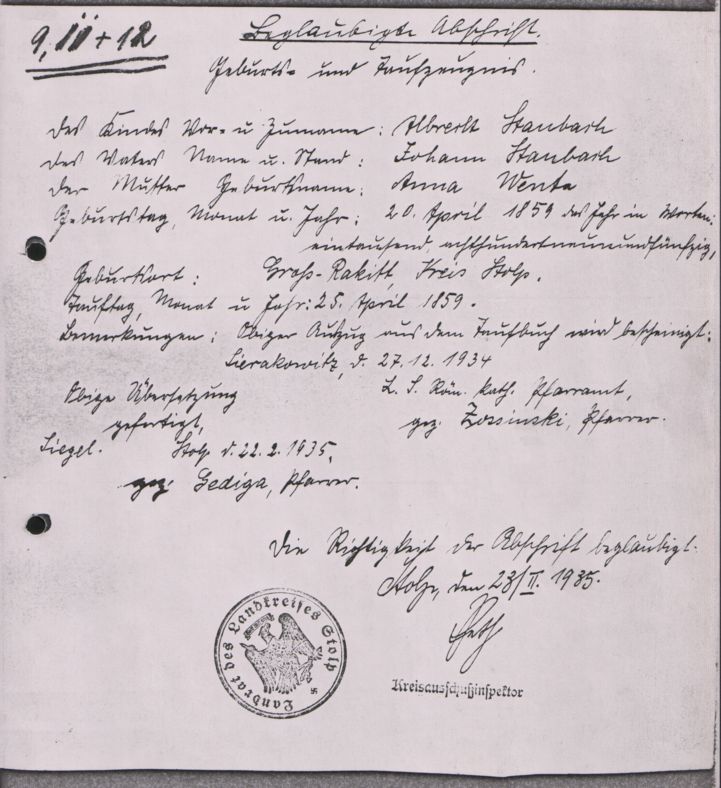 9, 11 + 12
Beglaubigte Abschrift.
Geburts- und Taufzeugnis.
des Kindes Vor- u Zuname: Albrecht Staubach
des Vaters Name u. Stand: Johann Staubach
der Mutter Geburtsname: Anna Wenta
Geburtstag, Monat u. Jahr: 20. April 1859 das Jahr in Worten:
eintausend, achthundertneunundfünfzig,
Geburtsort: Groß-Rakitt, Kreis Stolp.
Tauftag, Monat u Jahr: 25. April 1859.
Bemerkungen: Obiger Auszug aus dem Taufbuch wird bescheinigt:
Sierakowitz, d. 27.12.1934
Obige Übersetzung
L. S. Röm. kath. Pfarramt,
gefertigt,
gez. Zossinski, Pfarrer.
Siegel. Stolp d. 22.2.1935,
gez. Gediga, Pfarrer.
Die Richtigkeit der Abschrift beglaubigt.
Stolp, den 23/II. 1935.
Landrat des Landkreises Stolp
Kreisausschußinspektor